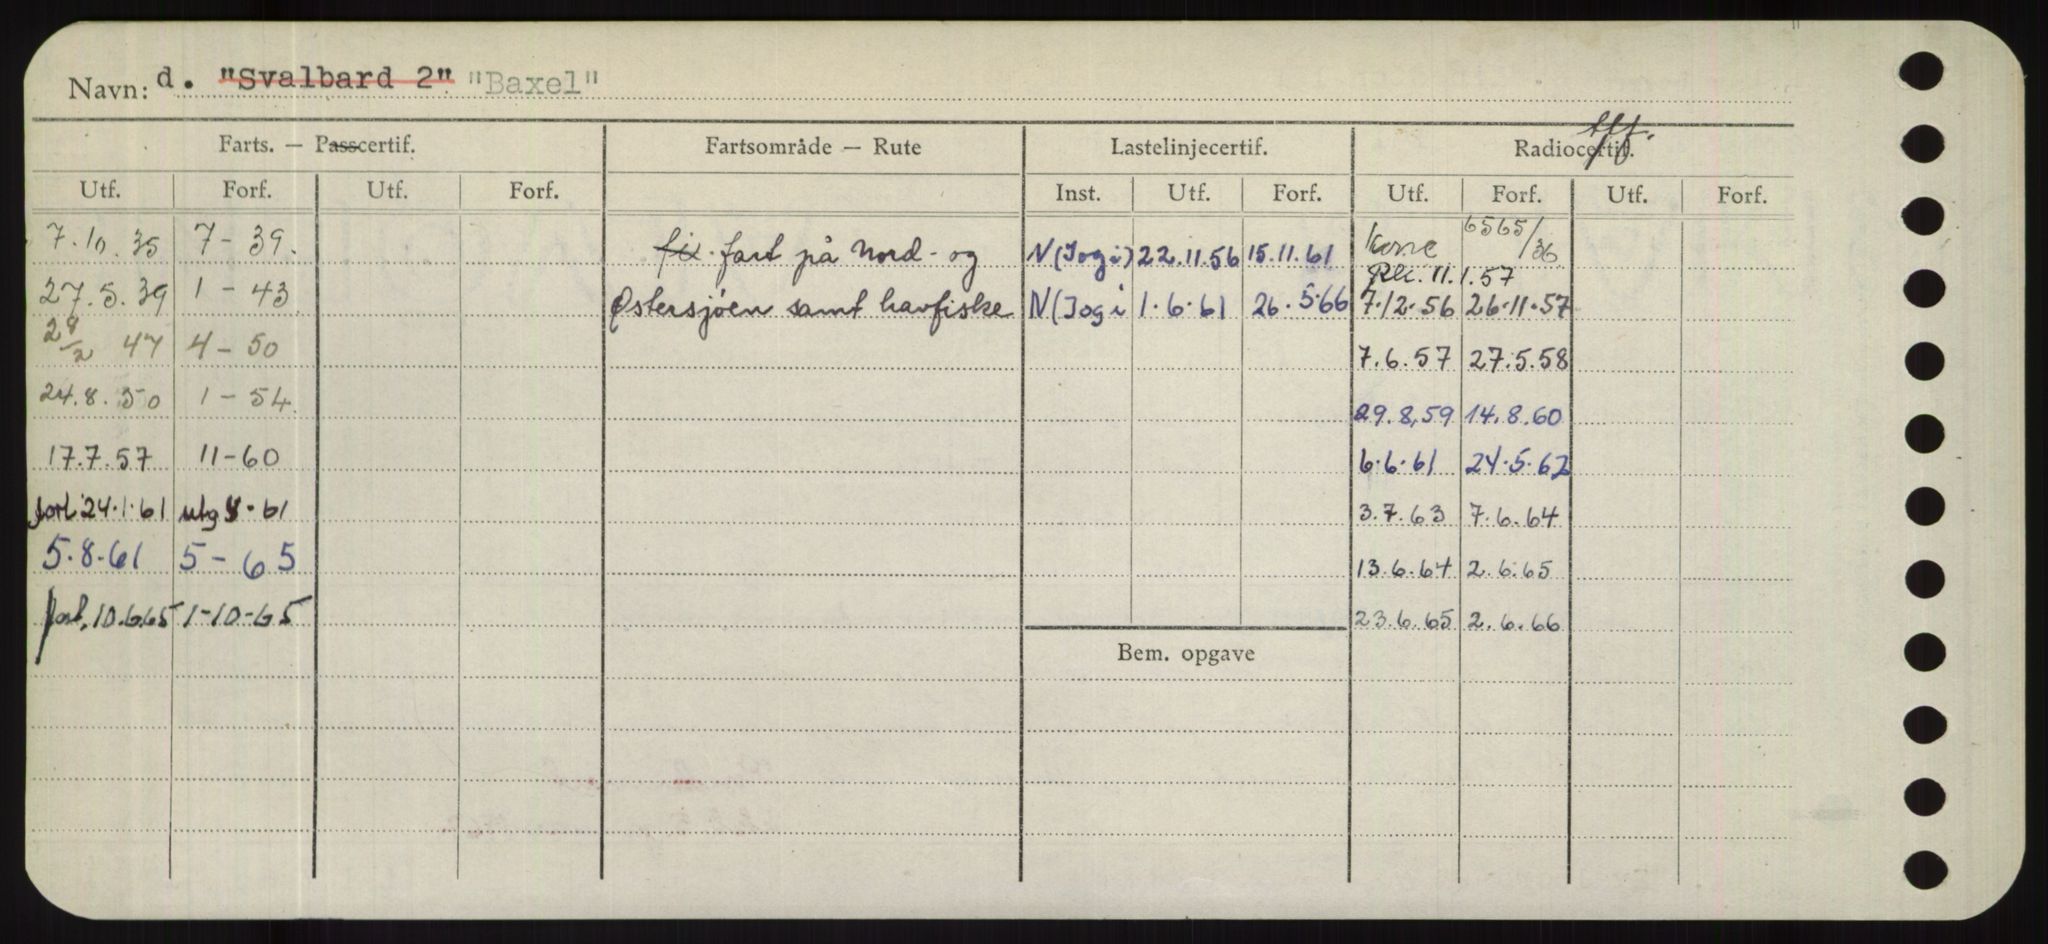 Navn: d. "Svalbard 2" "Baxel"
Farts. — Passcertif. Fartsområde — Rute Lastelinjecertif. Radiocertif.
Utf. Forf. Utf. Forf. Inst. Utf. Forf. Utf. Forf. Utf. Forf.
7.10.35 7-39. fix. fart på Nord- og N(Jogi) 22.11.56 15.11.61 6565/36
11.1.57
27.5.39 1-43 Østersjøen samt havfiske N(Jogi 1.6.61 26.5.66 7.12.56 26.11.57
28/2 47 4-50 7.6.57 27.5.58
24.8.50 1-54. 29.8.59 14.8.60
17.7.57 11-60 6.6.61 24.5.62
forl. 24.1.61 utg 4.61 3.7.63 7.6.64
5.8.61 5-65 13.6.64 2.6.65
forl. 10.6.65 1-10-65 23.6.65 2.6.66
Bem. opgave